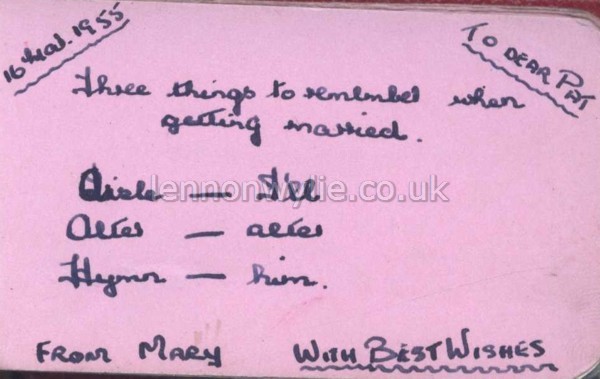 16 Mar. 1955
TO DEAR PAT
Three things to remember when
getting married.
Aisle — I'll
Alter — alter
Hymn — him.
lennonwylie.co.uk
FROM MARY WITH BEST WISHES